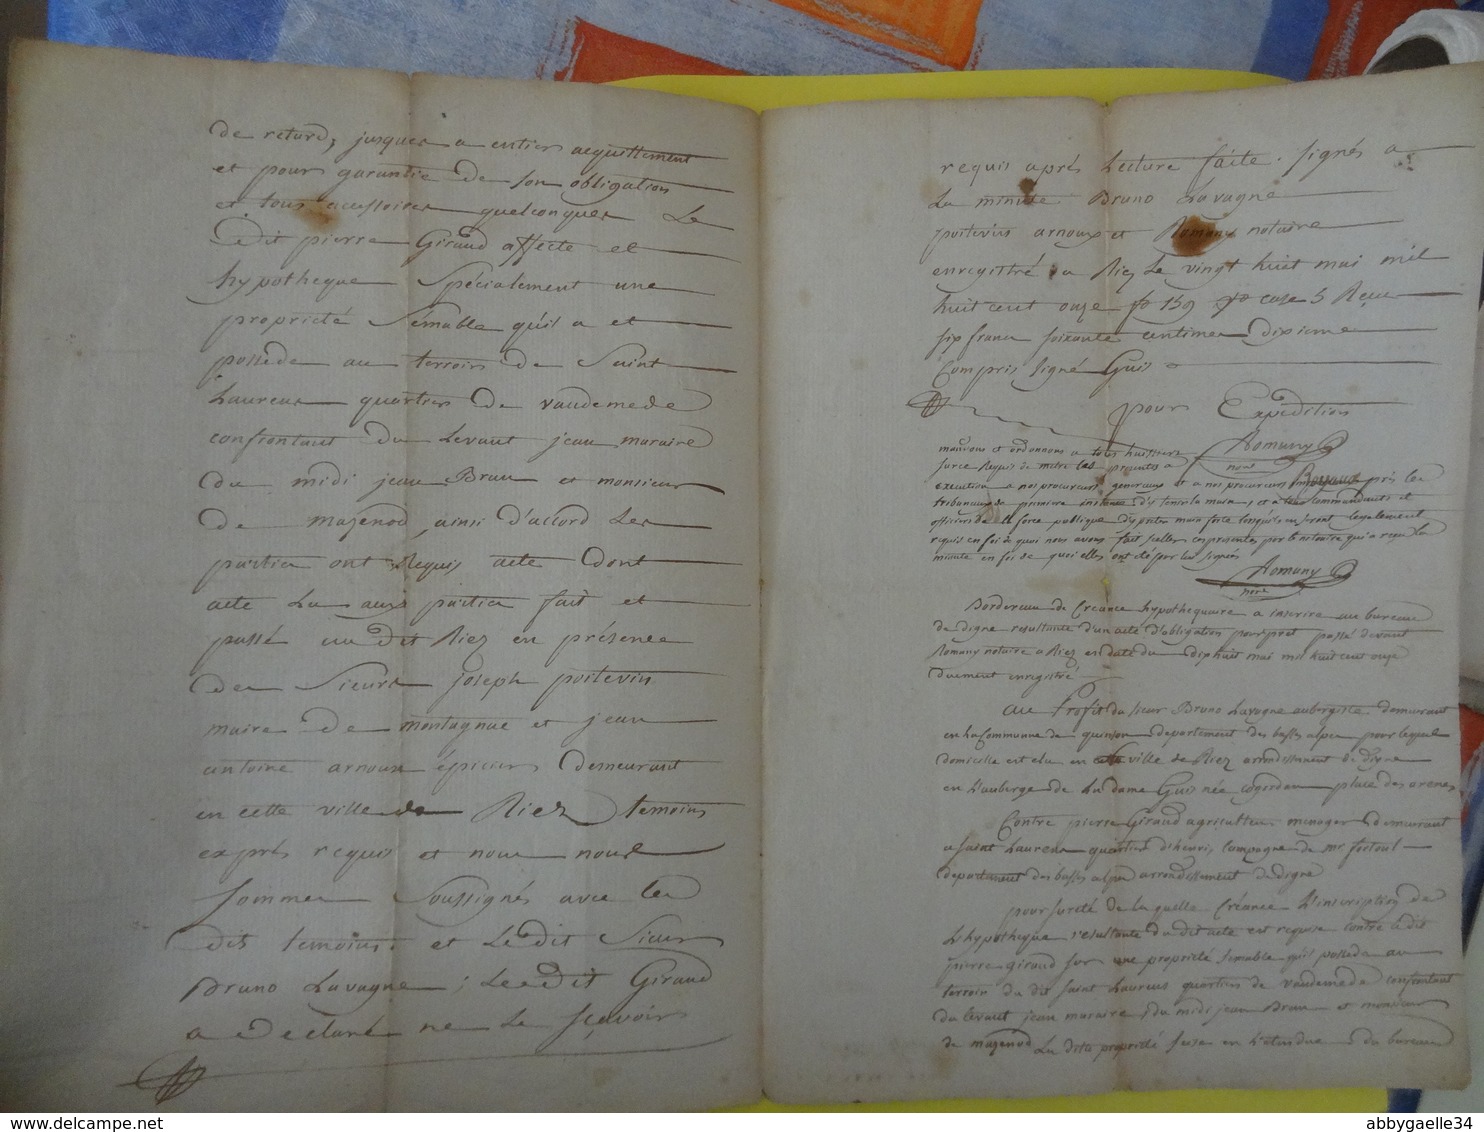 de retard, jusques a entier acquittement
et pour garantie de son obligation
et tous accessoires quelconques Le
Dedit pierre Giraud affecte et
hypotheque Spécialement une
propriété Semable qu'il a et
possede au terroir de Saint
Laurens quartier de vaudemede
confrontant du Levant jean muraire
du midi jean Brun et monsieur
de mazenod, ainsi d'accord Les
parties ont Requis acte dont
acte La aux parties fait et
passé au dit Riez en présence
des Sieurs joseph poitevin
maire de montagnac et jean
antoine arnoux épicier demeurant
en cette ville de Riez temoins
exprés requis et nous nous
sommes Soussignés avec les
dits temoins et Ledit Sieur
Bruno Lavagne ; Ledit Giraud
a declaré ne Le Sçavoir
requis aprés Lecture faite. signés a
La minute Bruno Lavagne
poitevin arnoux et Romany notaire
enregistré a Riez Le vingt huit mai mil
huit cent onze fo 159 vo case 5 Reçu
six francs soixante centimes dixieme
Compris signé Guis
pour Expédition
Romany
nore
mandons et ordonnons a tous huissiers
surce Requis de metre les presentes a
execution a nos procureurs generaux et a nos procureurs près les
tribunaux de premiere instance d'y tenir la main, et a tous commandants et
officiers de la force publique d'y preter main forte lorsqu'ils en seront legalement
requis en foi de quoi nous avons fait sceller ces presentes par le notaire qui a reçu la
minute en foi de quoi elles ont été par lui signés
Romany
nore
Bordereau de Créance hypothequaire a inscrire au bureau
de digne resultante d'un acte d'obligation pour pret passé devant
Romany notaire a Riez en date du dix huit mai mil huit cent onze
duement enregistré
au Profit du sieur Bruno Lavagne aubergiste demeurant
en La Commune de quinson departement des basses alpes pour lequel
domicille est elu en cette ville de Riez arrondissement de digne
en L'auberge de La dame Guis née cogordan place des arenes
Contre pierre Giraud agriculteur menager demeurant
a Saint Laurens quartier d'henris, campagne de mr fortoul
departement des basses alpes arrondissement de digne
pour sureté de la quelle Créance L'inscription de
L'hypotheque resultante du dit acte est requise contre le dit
pierre giraud sur une propriété semable qu'il possede au
terroir du dit saint Laurens quartier de vaudemede confrontant
du levant jean muraire, du midi jean Brun et monsieur
de mazenod La dite propriété sise en L'etendue du bureau
abbygaelle34